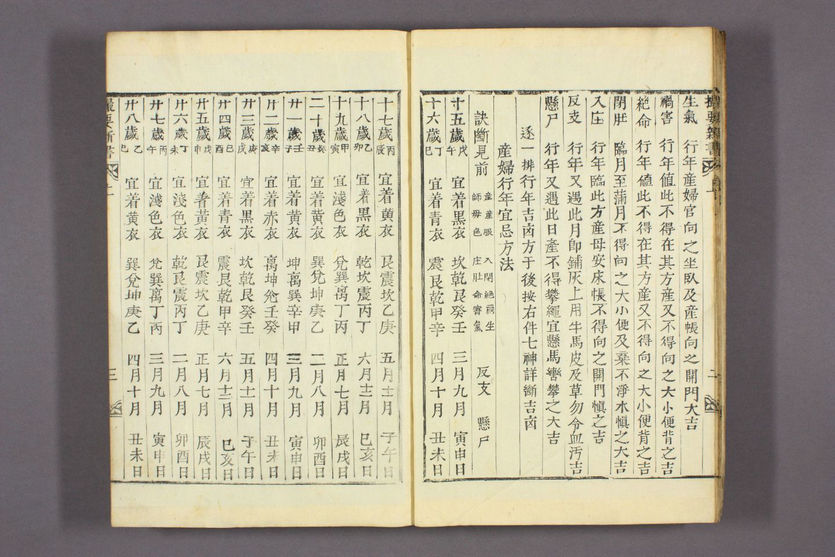 生氣 行年產婦宜向之坐臥及產帳向之開門大吉
禍害 行年値此不得在其方產又不得向之大小便背之吉
絶命 行年値此不得在其方產又不得向之大小便背之吉
閉肚 臨月至滿月不得向之大小便及棄不淨水愼之大吉
入庄 行年臨此方產母安床帳不得向之開門愼之吉
反支 行年又遇此月卽鋪灰上用牛馬皮及草勿令血汚吉
懸尸 行年又遇此日產不得攀繩宜懸馬轡攀之大吉
逐一排行年吉凶方于後按右件七神詳斷吉凶
產婦行年宜忌方法
訣斷見前 產師 產母 服色 入庄 閉肚 絶命 禍害 生氣 反支 懸尸
十五歲戊午 宜着黑衣 坎乾艮癸壬 三月九月 寅申日
十六歲丁巳 宜着青衣 震艮乾甲辛 四月十月 丑未日
十七歲丙辰 宜着黄衣 艮震坎乙庚 五月十一月 子午日
十八歲乙卯 宜着黒衣 乾坎震丙丁 六月十二月 巳亥日
十九歲甲寅 宜淺色衣 兌巽离丁丙 正月七月 辰戌日
二十歲癸丑 宜着黄衣 巽兌坤庚乙 二月八月 卯酉日
廿一歲壬子 宜着黄衣 坤离巽辛甲 三月九月 寅申日
廿二歲辛亥 宜着赤衣 离坤兌壬癸 四月十月 丑未日
廿三歲庚戌 宜着黒衣 坎乾艮癸壬 五月十一月 子午日
廿四歲己酉 宜着青衣 震艮乾甲辛 六月十二月 巳亥日
廿五歲戊申 宜着黄衣 艮震坎乙庚 正月七月 辰戌日
廿六歲丁未 宜淺色衣 乾坎震丙丁 二月八月 卯酉日
廿七歲丙午 宜淺色衣 兌巽离丁丙 三月九月 寅申日
廿八歲乙巳 宜着黄衣 巽兌坤庚乙 四月十月 丑未日